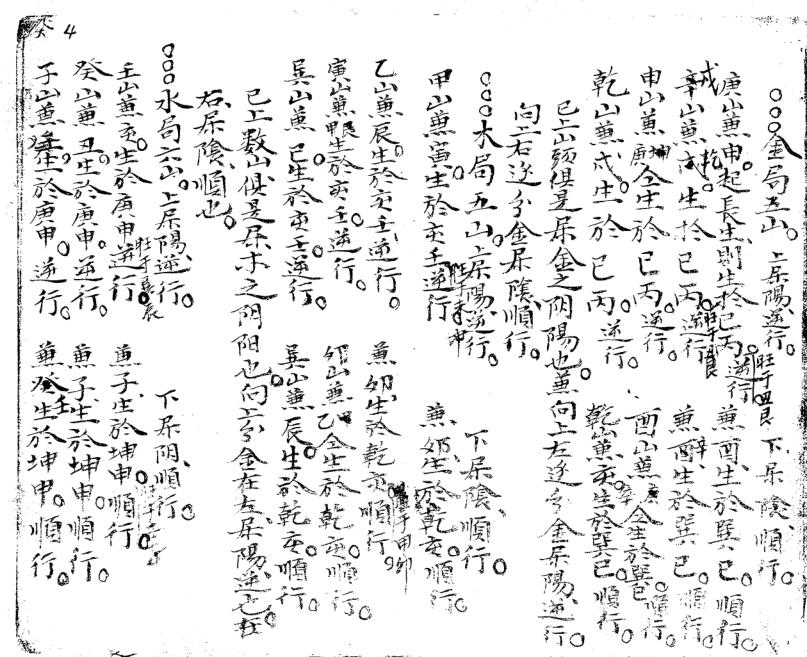 癸 4
○○○金局五山。上屬陽、逆行。 下屬陰、順行。
庚山兼申。起長生、則生於巳丙。逆行 旺于四艮 兼酉、生於巽巳。順行。
辛山兼戌。生於巳丙。逆行 兼酉生於巽巳。順行。
申山兼庚坤仝生於巳丙逆行。 酉山兼庚辛仝生於巽巳。順行。
乾山兼戌。生於巳丙。逆行。 乾山兼亥。生於巽巳。順行。
已上山頭俱是屬金之阴陽也。兼向上左逆分金屬陽、逆行。
向上右逆分金屬陰、順行。
○○○木局五山。上屬陽、逆行。 下屬陰、順行。
甲山兼寅。生於亥壬逆行 兼卯。生於乾亥。順行。
乙山兼辰。生於亥壬逆行。 兼卯。生於乾亥順行。
寅山兼甲艮生於亥壬逆行。 卯山兼甲乙仝生於乾亥。順行。
巽山兼巳。生於亥壬逆行。 巽山兼辰。生於乾亥。順行。
已上数山俱是屬木之阴阳也。向上分金在左、屬陽、逆也。在
右、屬陰、順也。
○○○水局六山。上屬陽、逆行。 下屬阴、順行。
壬山兼亥。生於庚申逆行。 兼子。生於坤申。順行。
癸山兼丑。生於庚申。逆行。 兼子。生於坤申。順行。
子山兼 生於庚申。逆行。 兼癸生於坤申。順行。